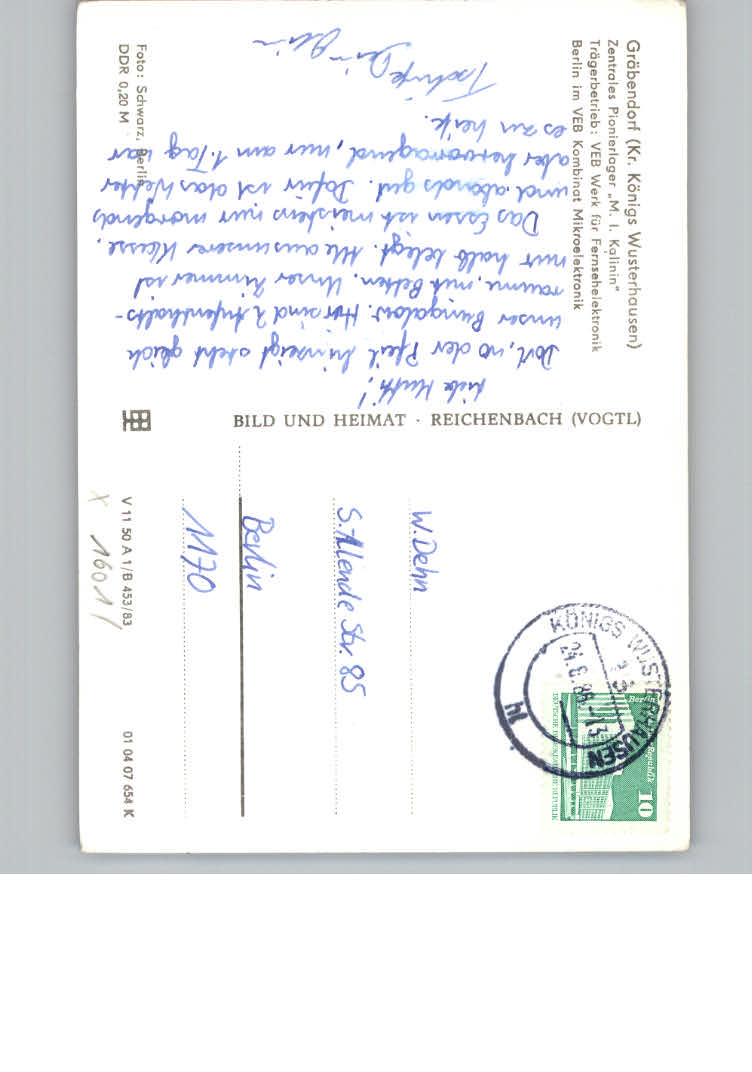 Gräbendorf (Kr. Königs Wusterhausen)
Zentrales Pionierlager „M. I. Kalinin"
Trägerbetrieb: VEB Werk für Fernsehelektronik
Berlin im VEB Kombinat Mikroelektronik
Liebe Mutti!
Dort, wo der Pfeil hinzeigt steht gleich
unser Bungalow. Hier sind 2 Aufenthalts-
räume, mit Betten. Unser Zimmer ist
nur halb belegt. Alle aus unserer Klasse.
Das Essen ist meistens nur morgends
und abends gut. Dafür ist das Wetter
aber hervorragend, nur am 1. Tag war
es zu heiß.
Tschüß
Dein
Foto: Schwarz, Berlin
DDR 0,20 M
BILD UND HEIMAT · REICHENBACH (VOGTL)
W. Dehn
S. Allende Str. 85
Berlin
1170
V 11 50 A 1/B 453/83
01 04 07 654 K
x 1601/
KÖNIGS WUSTERHAUSEN
Berlin
10
DEUTSCHE DEMOKRATISCHE REPUBLIK